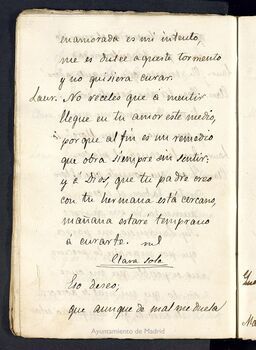 enamorada es mi intento,
me es dulce aqueste tormento
y no quisiera curar.
Laur. No receles que á mentir
llegue en tu amor este medio,
porque al fin es un remedio
que obra siempre sin sentir;
y á Dios, que tu padre creo
con tu hermana está cercano,
mañana estaré temprano
á curarte.
Clara sola
Eso deseo,
que aunque de mal me duela
Ayuntamiento de Madrid